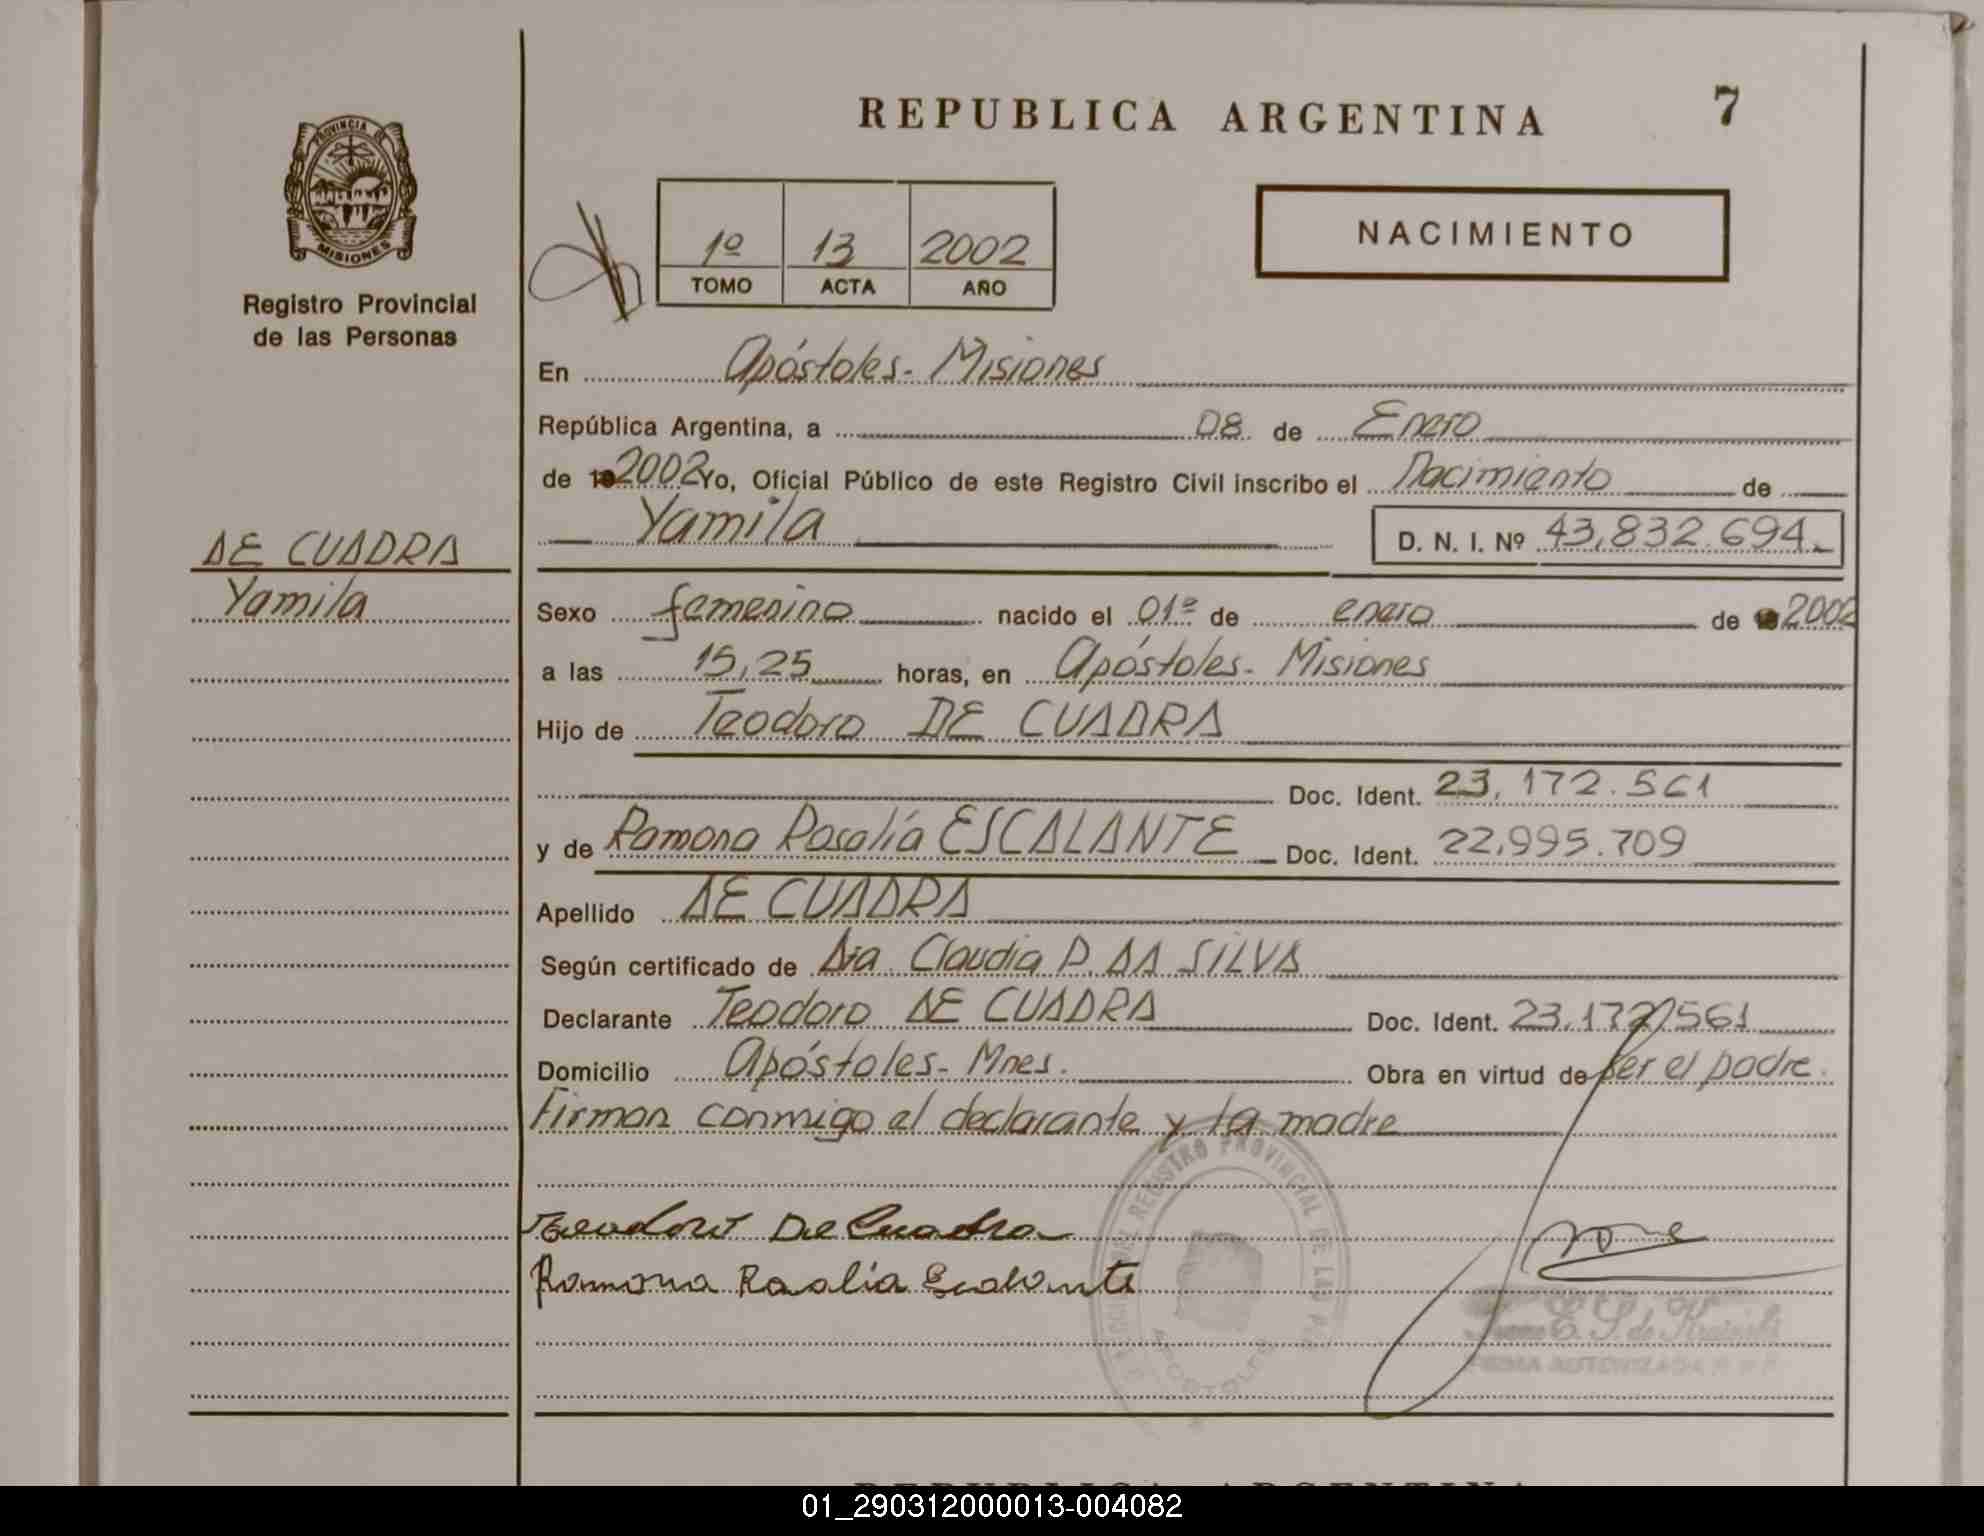 REPUBLICA ARGENTINA
7
PROVINCIA DE
MISIONES
Registro Provincial
de las Personas
1º 13 2002
TOMO ACTA AÑO
NACIMIENTO
En Apóstoles - Misiones
República Argentina, a 08 de Enero
de 2002 Yo, Oficial Público de este Registro Civil inscribo el Nacimiento de
Yamila D. N. I. Nº 43,832.694.
DE CUADRA
Yamila
Sexo femenino nacido el 01º de enero de 2002
a las 15,25 horas, en Apóstoles - Misiones
Hijo de Teodoro DE CUADRA
Doc. Ident. 23,172.561
y de Ramona Rosalía ESCALANTE Doc. Ident. 22,995.709
Apellido DE CUADRA
Según certificado de Dra. Claudia P. DA SILVA
Declarante Teodoro DE CUADRA Doc. Ident. 23,172561
Domicilio Apóstoles - Mnes. Obra en virtud de ser el padre.
Firman conmigo el declarante y la madre
REGISTRO PROVINCIAL DE LAS
APOSTOLES
Teodoro De Cuadra
Ramona Rosalia Escalante
FIRMA AUTORIZADA
REPUBLICA ARGENTINA
01_290312000013-004082